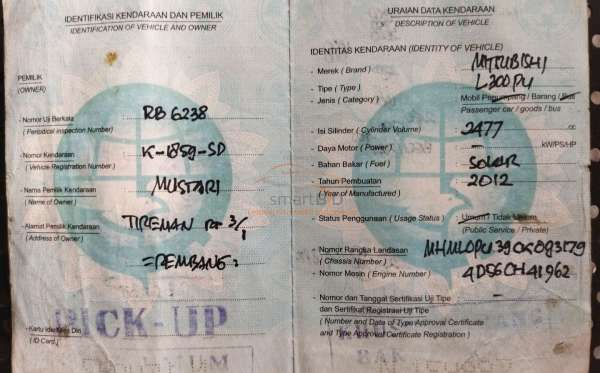 IDENTIFIKASI KENDARAAN DAN PEMILIK
IDENTIFICATION OF VEHICLE AND OWNER
PEMILIK
(OWNER)
- Nomor Uji Berkala RB 6238
( Periodical Inspection Number)
- Nomor Kendaraan K-1859-SD
( Vehicle Registration Number )
- Nama Pemilik Kendaraan MUSTARI
(Name of Owner)
- Alamat Pemilik Kendaraan TIREMAN RT 3/1
( Address of Owner )
=REMBANG:
- Kartu Identitas Diri
( ID Card )
PICK-UP
UMUM
URAIAN DATA KENDARAAN
DESCRIPTION OF VEHICLE
IDENTITAS KENDARAAN (IDENTITY OF VEHICLE)
- Merek ( Brand ) MITSUBISHI
- Tipe ( Type ) L300PU
- Jenis ( Category ) Mobil Penumpang / Barang / Bus
Passenger car / goods / bus
- Isi Silinder ( Cylinder Volume ) 2477
- Daya Motor ( Power ) - kW/PS/HP
- Bahan Bakar ( Fuel ) Solar
- Tahun Pembuatan 2012
( Year of Manufactured )
- Status Penggunaan ( Usage Status) Umum / Tidak Umum
(Public Service / Private)
- Nomor Rangka Landasan
( Chassis Number )
- Nomor Mesin ( Engine Number ) 4D56CH41962
- Nomor dan Tanggal Sertifikasi Uji Tipe -
dan Sertifikat Registrasi Uji Tipe
( Number and Date of Type Approval Certificate
and Type Approval Certificate Registration )